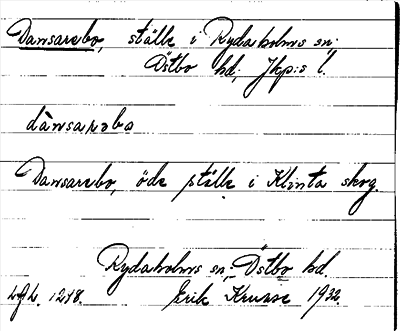 Dansarebo, ställe i Rydaholms sn;
Östbo hd; Jkp:s l.
dànsarəbo
Dansarebo, öde ställe i Klinta skog.
Rydaholms sn; Östbo hd.
1248. Erik Krusse 1932.